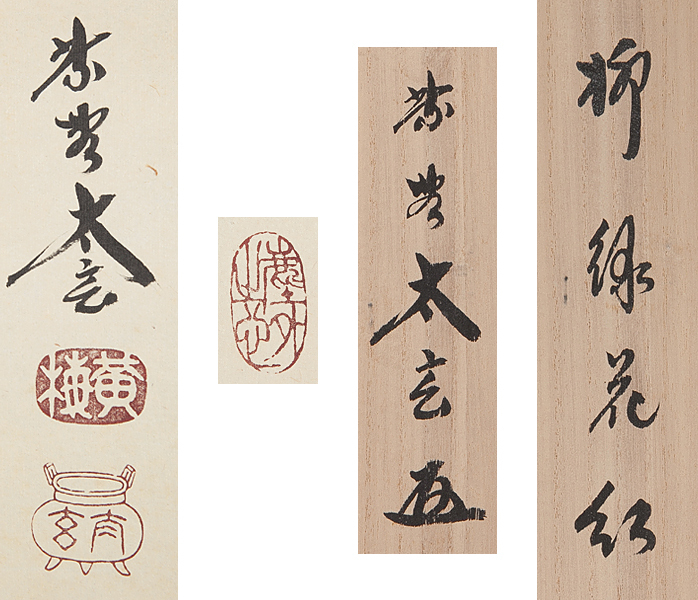 紫野
太玄
黄梅
太玄
紫野太玄
柳緑花紅